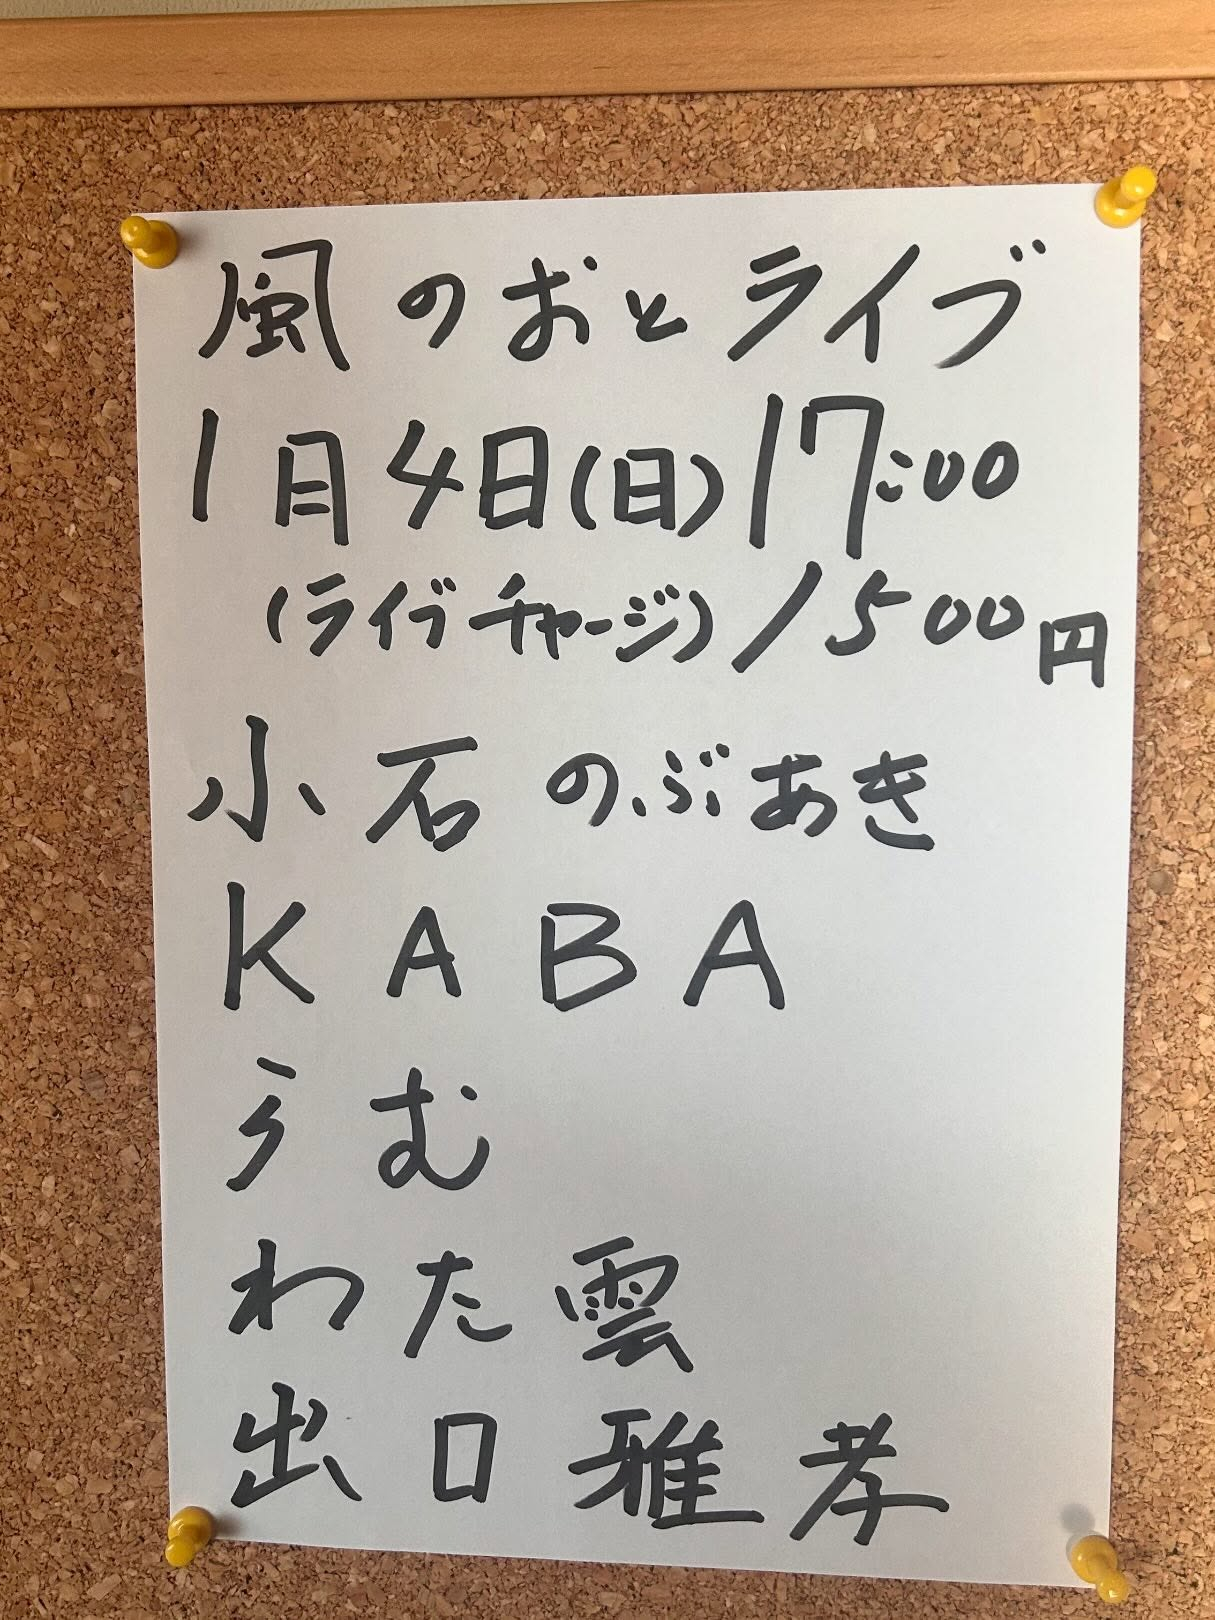 風のおとライブ
1月4日(日)17:00
(ライブチャージ)1500円
小石のぶあき
KABA
うむ
わた雲
出口雅孝